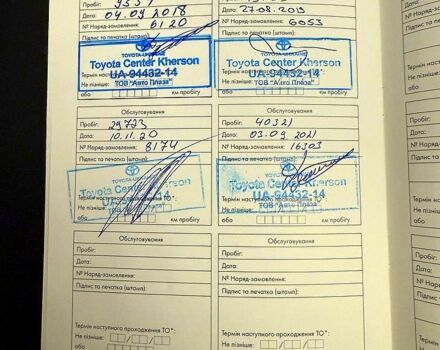 Пробіг: 9357
Дата: 04.09.2018
№ Наряд-замовлення: 6120
Підпис та печатка (штамп):
TOYOTA-UKRAINE
Toyota Center Kherson
UA-94432-14
ТОВ "Авто Плаза"
Термін
Не пізніше:
або
км пробігу
Дата: 27.08.2019
№ Наряд-замовлення: 6053
Підпис та печатка (штамп):
TOYOTA-UKRAINE
Toyota Center Kherson
UA-94432-14
ТОВ "Авто Плаза"
Термін
Не пізніше:
або
км пробігу
Обслуговування
Пробіг: 29723
Дата: 10.11.20
№ Наряд-замовлення: 8174
Підпис та печатка (штамп):
TOYOTA-UKRAINE
Toyota Center Kherson
UA-94432-14
Термін наступного проходження ТО*:
Не пізніше:
або
км пробігу
Обслуговування
Пробіг: 40321
Дата: 03.09.2021
№ Наряд-замовлення: 16303
Підпис та печатка (штамп):
TOYOTA-UKRAINE
Toyota Center Kherson
UA-94432-14
ТОВ "Авто Плаза"
Термін наступного проходження ТО*:
Не пізніше:
або
км пробігу
Обслуговування
Пробіг:
Дата:
№ Наряд-замовлення:
Підпис та печатка (штамп):
Термін наступного проходження ТО*:
Не пізніше:
або
км пробігу
Обслуговування
Пробіг:
Дата:
№ Наряд-замовлення:
Підпис та печатка (штамп):
Термін наступного проходження ТО*:
Не пізніше:
або
км пробігу